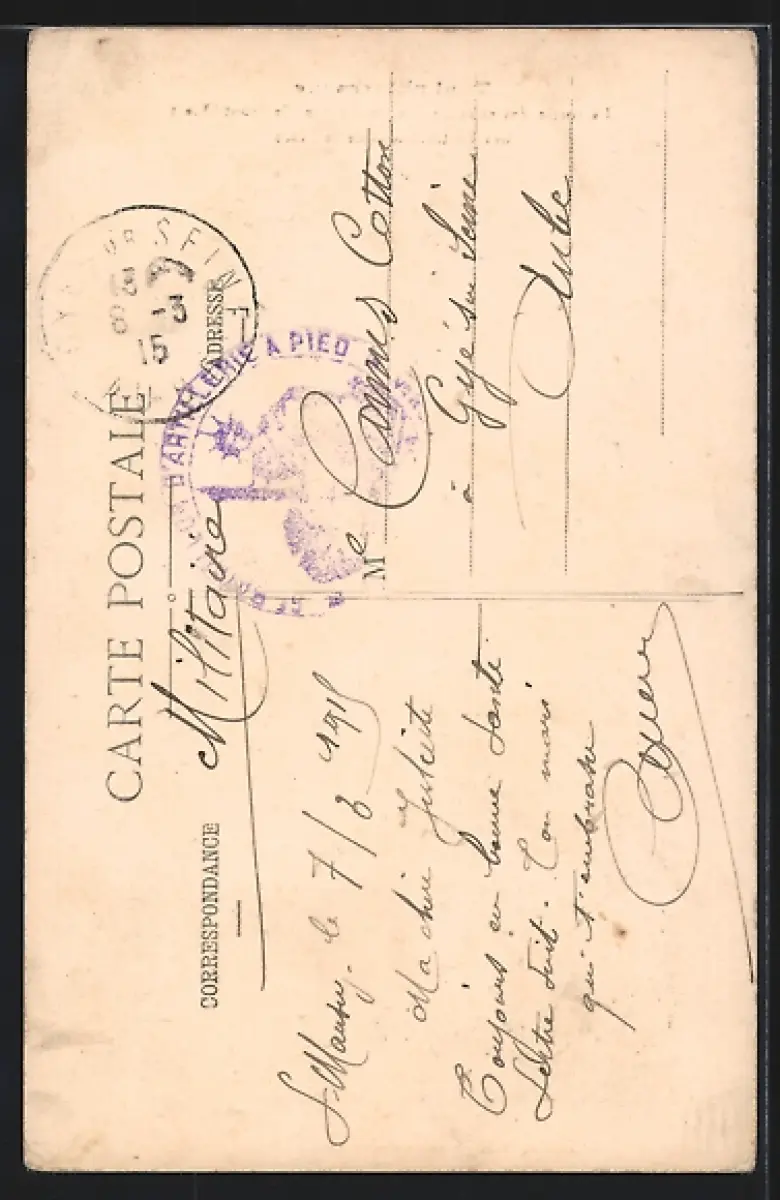 CARTE POSTALE
Militaire
CORRESPONDANCE
ADRESSE
le 7/3 1915
Ma chère Juliette
Toujours en bonne santé
Lettre suit. Ton mari
qui t'embrasse
Me Camus Cotton
à Gyé sur Seine
Aube
D'ARTILLERIE A PIED
SUR SEINE
8 -3
15